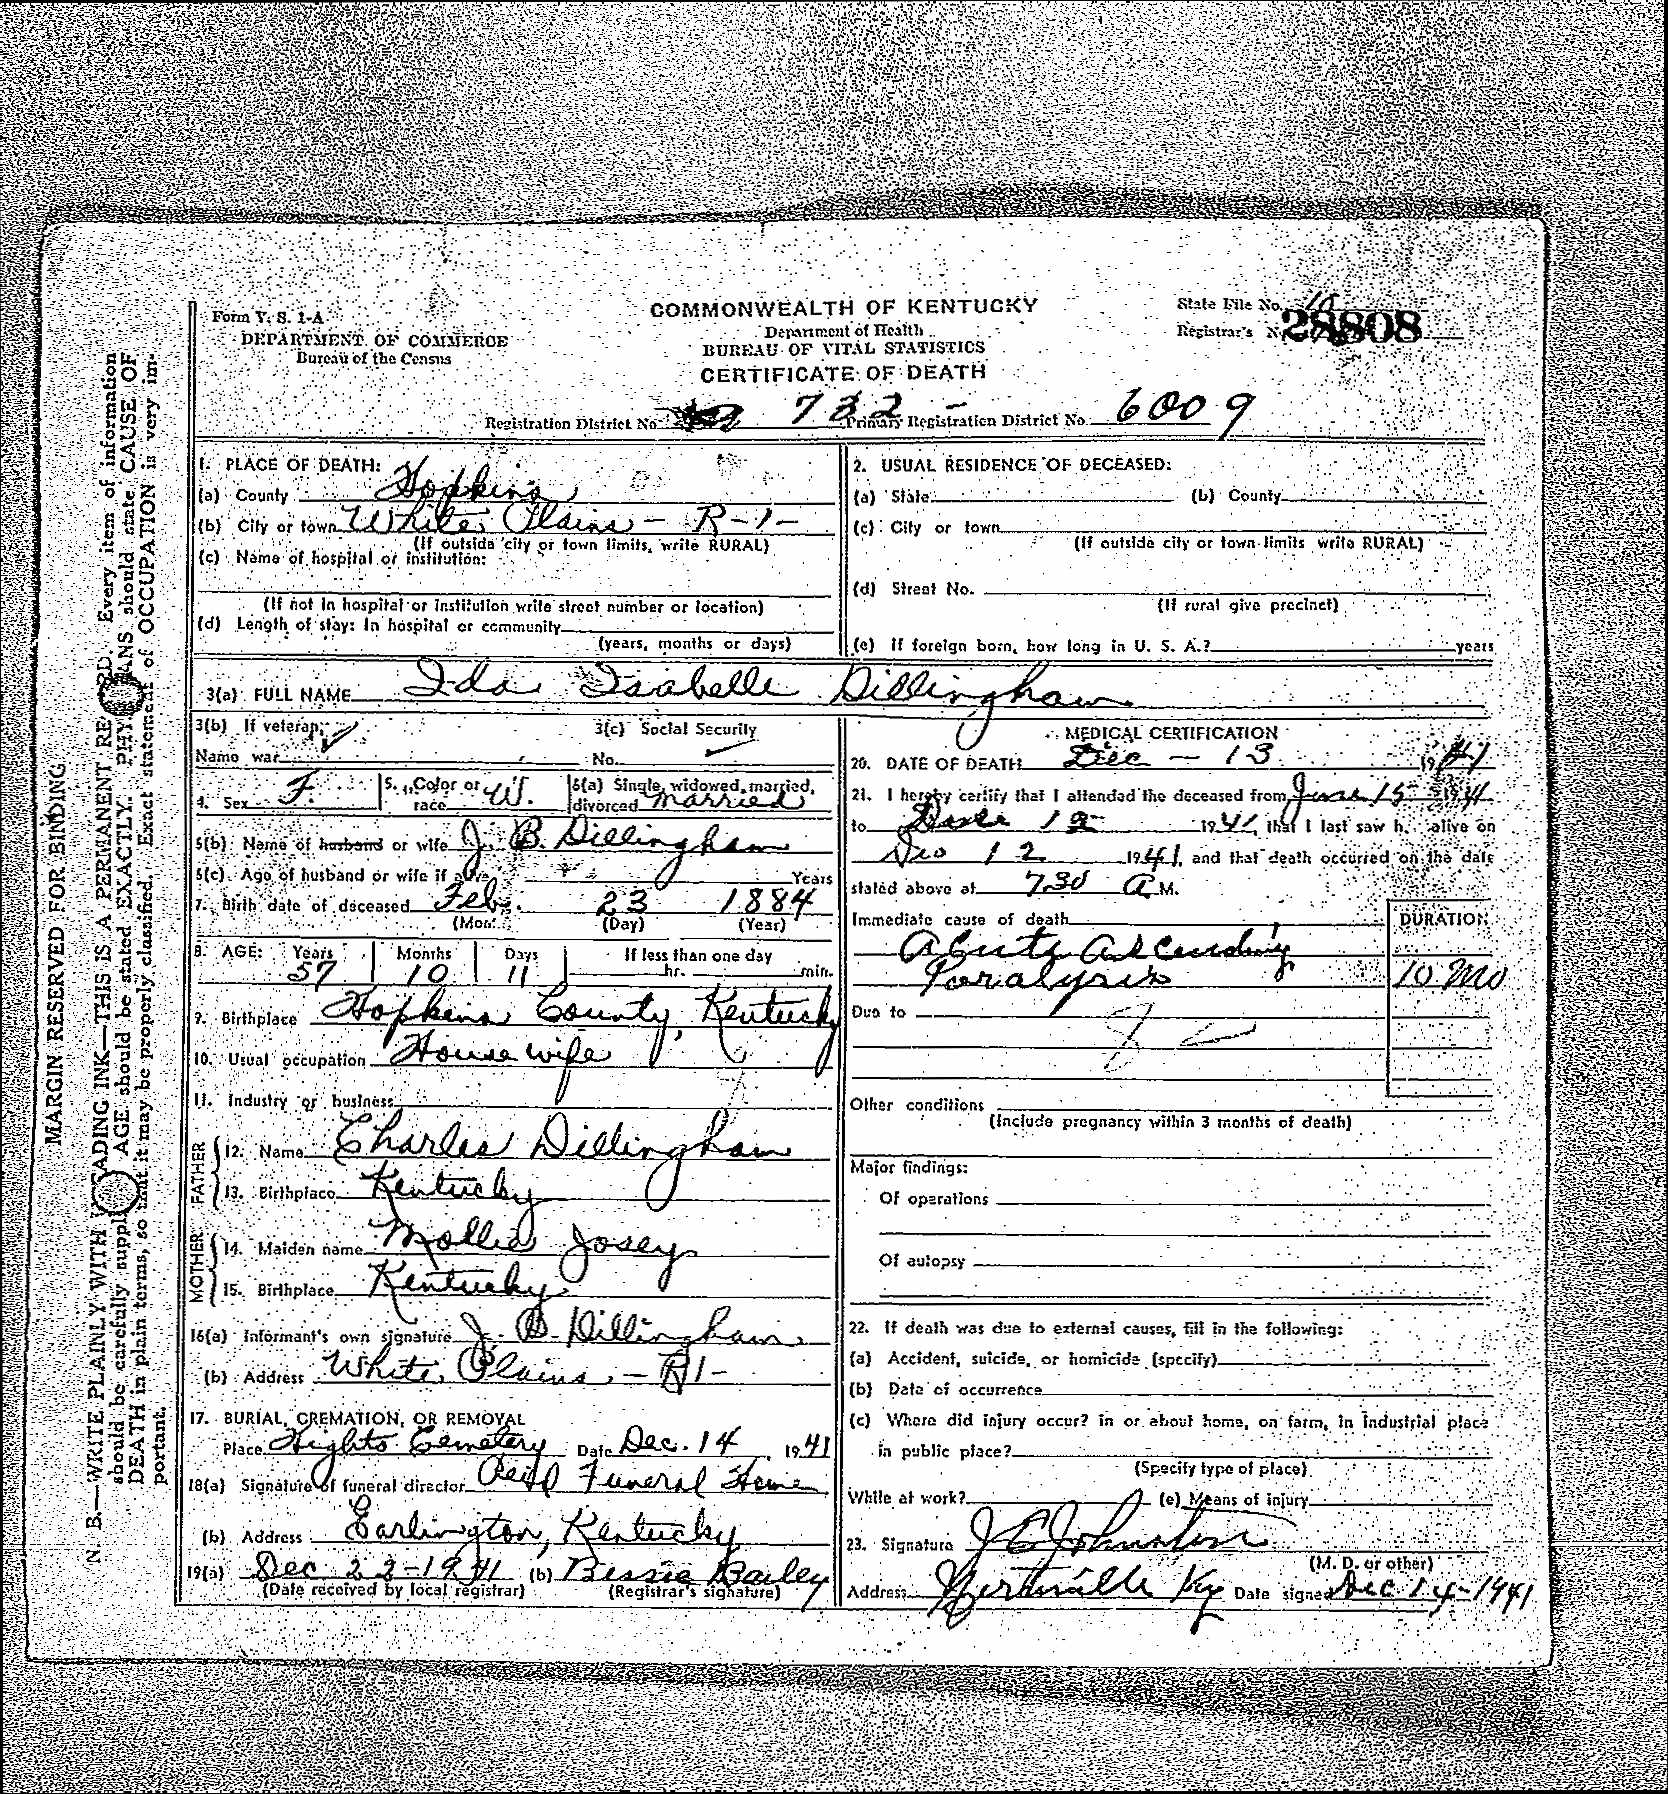 Form V. S. 1-A
DEPARTMENT OF COMMERCE
Bureau of the Census
COMMONWEALTH OF KENTUCKY
Department of Health
BUREAU OF VITAL STATISTICS
CERTIFICATE OF DEATH
State File No.
Registrar's No. 28808
Registration District No. 732 - Primary Registration District No. 6009
1. PLACE OF DEATH:
(a) County Hopkins
(b) City or town White Plains - R-1-
(If outside city or town limits, write RURAL)
(c) Name of hospital or institution:
(If not in hospital or institution write street number or location)
(d) Length of stay: In hospital or community
(years, months or days)
2. USUAL RESIDENCE OF DECEASED:
(a) State (b) County
(c) City or town
(If outside city or town limits write RURAL)
(d) Street No.
(If rural give precinct)
(e) If foreign born, how long in U. S. A.? years
3(a) FULL NAME Ida Isabelle Dillingham
3(b) If veteran,
Name war
3(c) Social Security
No.
4. Sex F. 5. Color or race W. 6(a) Single, widowed, married, divorced married
6(b) Name of husband or wife J. B. Dillingham
6(c) Age of husband or wife if alive Years
7. Birth date of deceased Feb. 23 1884
(Mon. (Day) (Year)
8. AGE: Years Months Days If less than one day
57 10 11 hr. min.
9. Birthplace Hopkins County, Kentucky
10. Usual occupation House wife
11. Industry or business
FATHER
12. Name Charles Dillingham
13. Birthplace Kentucky
MOTHER
14. Maiden name Mollie Josey
15. Birthplace Kentucky
16(a) Informant's own signature J. B. Dillingham
(b) Address White Plains - R1-
17. BURIAL, CREMATION, OR REMOVAL
Place Hights Cemetery Date Dec. 14 1941
18(a) Signature of funeral director Reid Funeral Home
(b) Address Earlington, Kentucky
19(a) Dec 22-1941 (b) Bessie Bailey
(Date received by local registrar) (Registrar's signature)
MEDICAL CERTIFICATION
20. DATE OF DEATH Dec - 13 1941
21. I hereby certify that I attended the deceased from June 15 1941
to 12 1941, that I last saw h alive on
Dec 12 1941, and that death occurred on the date
stated above at 730 A M.
Immediate cause of death DURATION
Acute Ascending
Paralysis 10 mo
Due to
Other conditions
(Include pregnancy within 3 months of death)
Major findings:
Of operations
Of autopsy
22. If death was due to external causes, fill in the following:
(a) Accident, suicide, or homicide (specify)
(b) Date of occurrence
(c) Where did injury occur? in or about home, on farm, in industrial place
in public place?
(Specify type of place)
While at work? (e) Means of injury
23. Signature J E Johnston
(M. D. or other)
Address Nortonville Ky Date signed Dec 14-1941
MARGIN RESERVED FOR BINDING
N. B.—WRITE PLAINLY WITH UNFADING INK—THIS IS A PERMANENT RECORD. Every item of information
should be carefully supplied. AGE should be stated EXACTLY. PHYSICIANS should state CAUSE OF
DEATH in plain terms, so that it may be properly classified. Exact statement of OCCUPATION is very im-
portant.